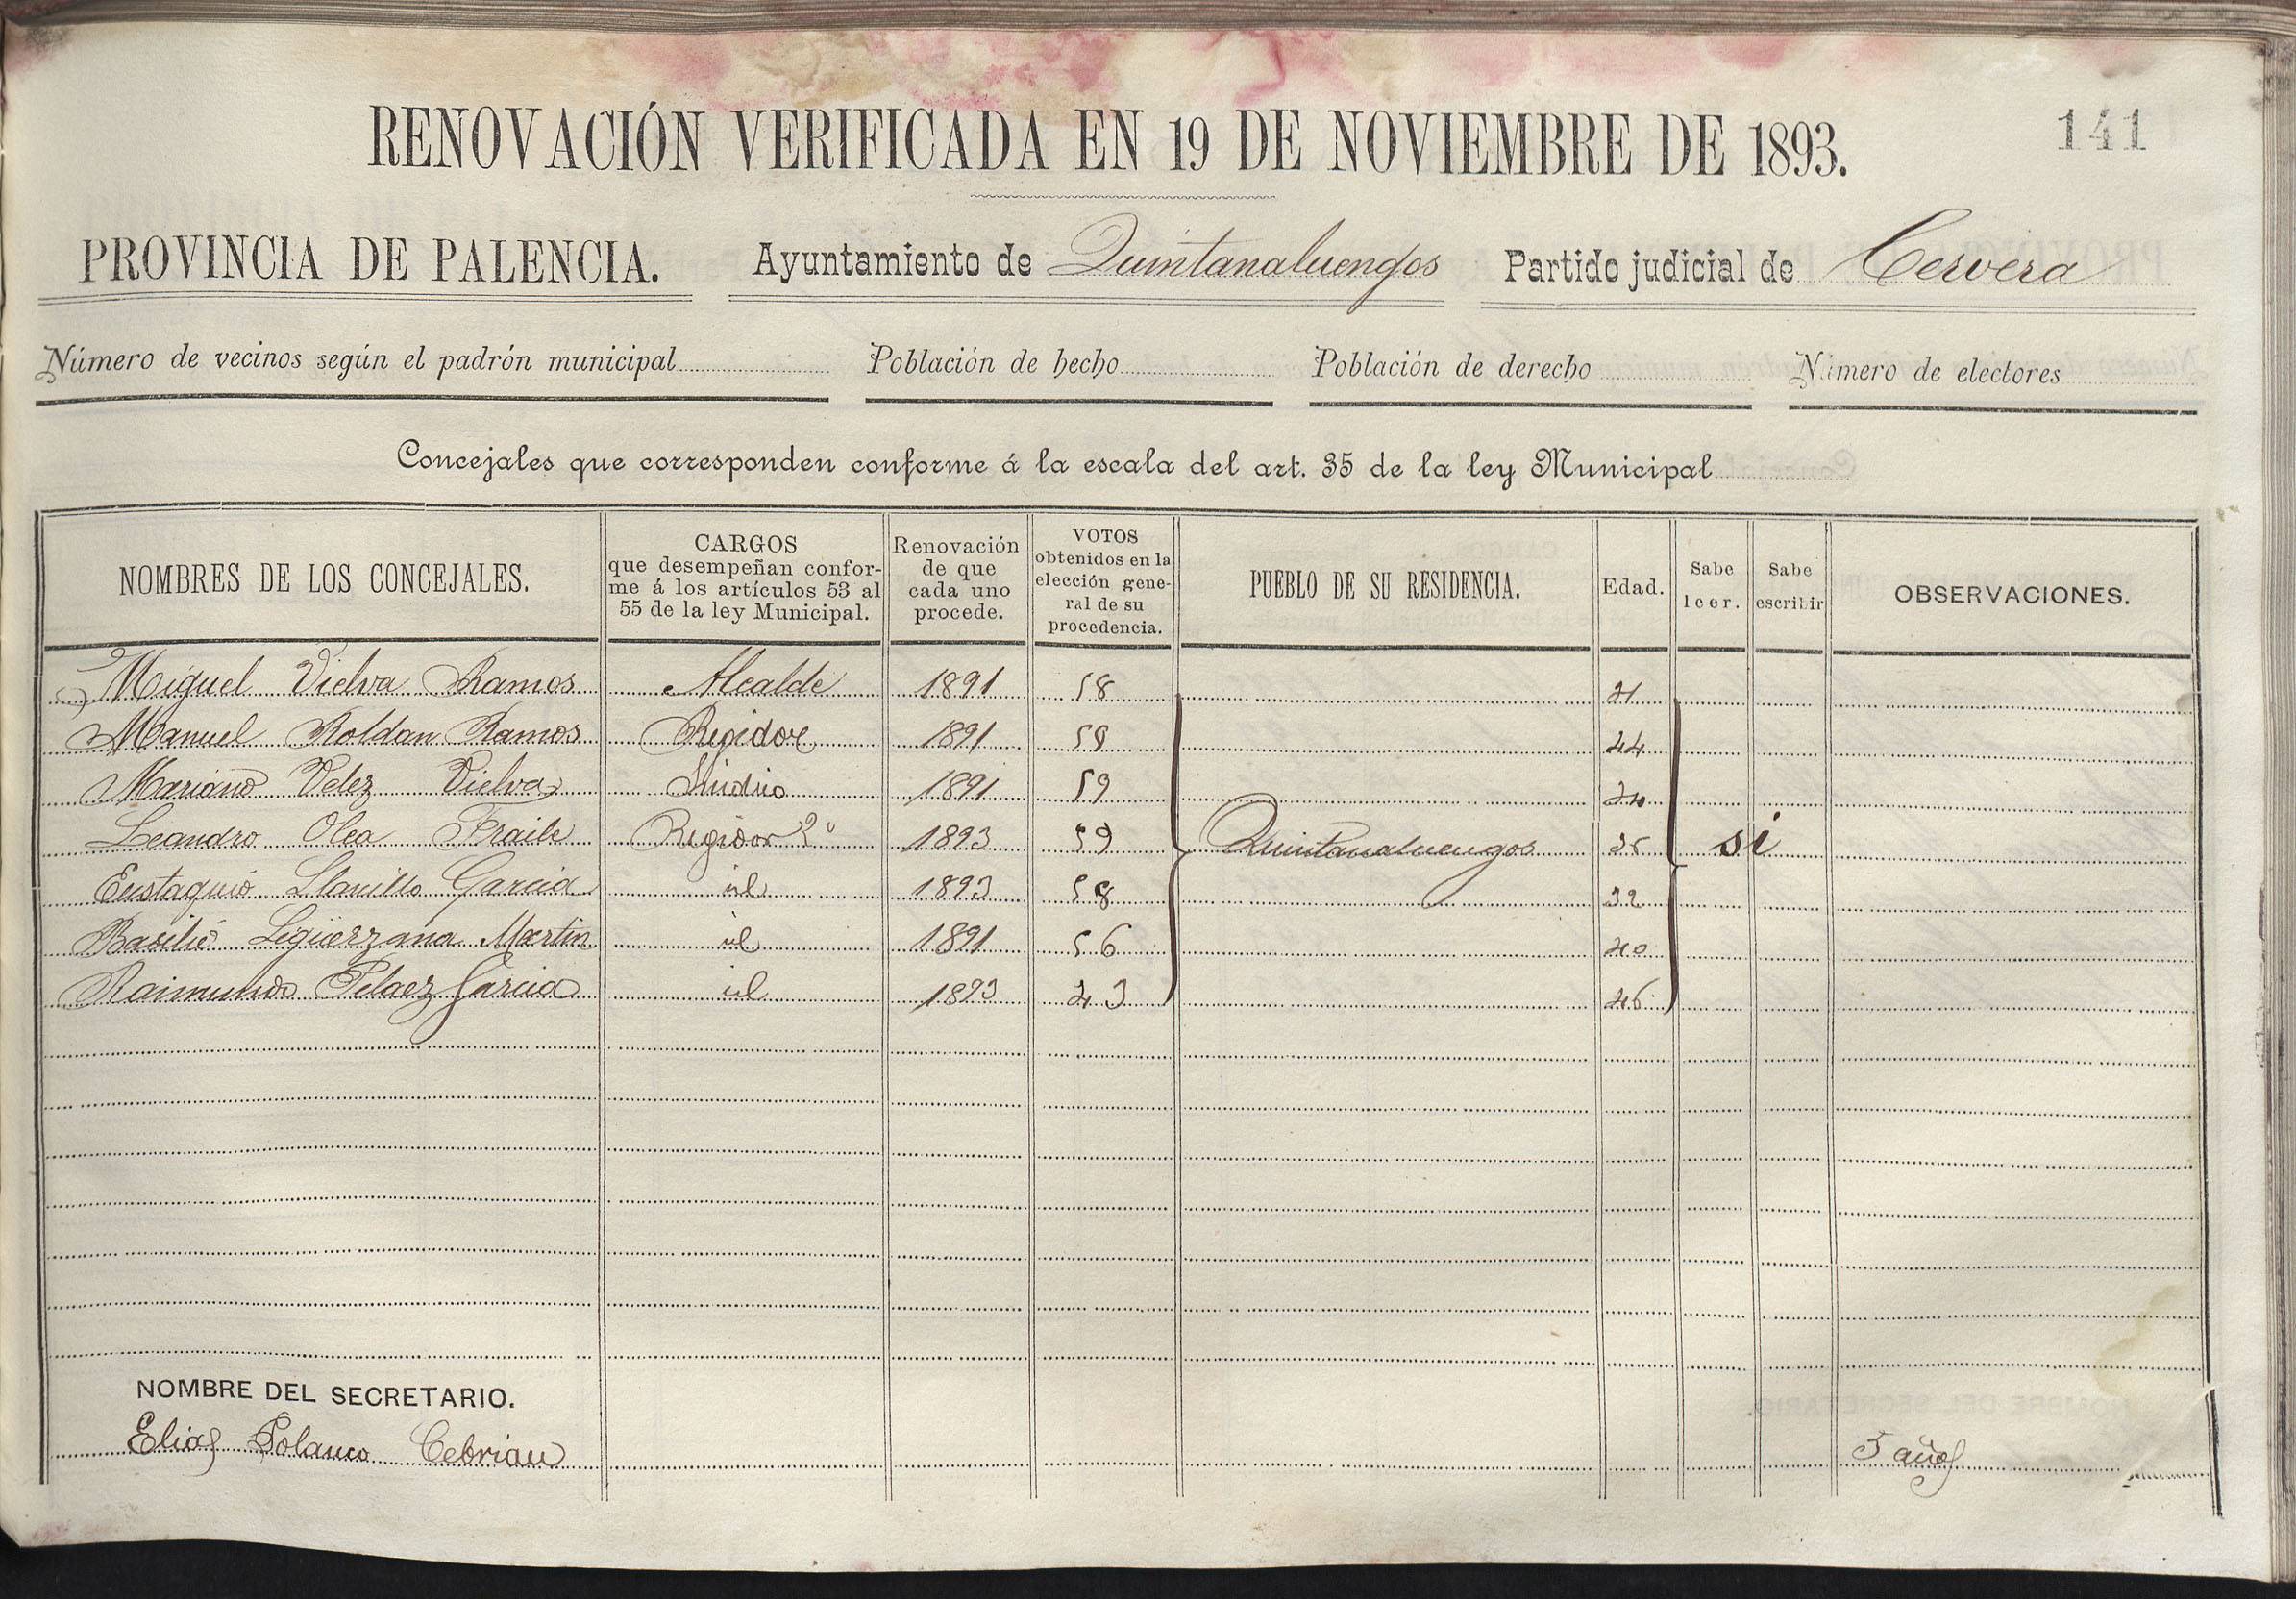 RENOVACIÓN VERIFICADA EN 19 DE NOVIEMBRE DE 1893.
141
PROVINCIA DE PALENCIA. Ayuntamiento de Quintanaluengos Partido judicial de Cervera
Número de vecinos según el padrón municipal Población de hecho Población de derecho Número de electores
Concejales que corresponden conforme á la escala del art. 35 de la ley Municipal
NOMBRES DE LOS CONCEJALES.
CARGOS
que desempeñan confor-
me á los artículos 53 al
55 de la ley Municipal.
Renovación
de que
cada uno
procede.
VOTOS
obtenidos en la
elección gene-
ral de su
procedencia.
PUEBLO DE SU RESIDENCIA.
Edad.
Sabe
leer.
Sabe
escribir
OBSERVACIONES.
Miguel Vielva Ramos Alcalde 1891 58
Manuel Roldan Ramos Regidor 1891 58 44
Mariano Velez Vielva 1891 59
Leandro Olea Fraile Regidor 2º 1893 59 Quintanaluengos si
Eustaquio Llanillo Garcia id 1893 58 32
Basilio Ligüerzana Martin id 1891 56 40
Raimundo Pelaez Garcia id 1893 43 46
NOMBRE DEL SECRETARIO.
Elias Polanco Cebrian 5 años